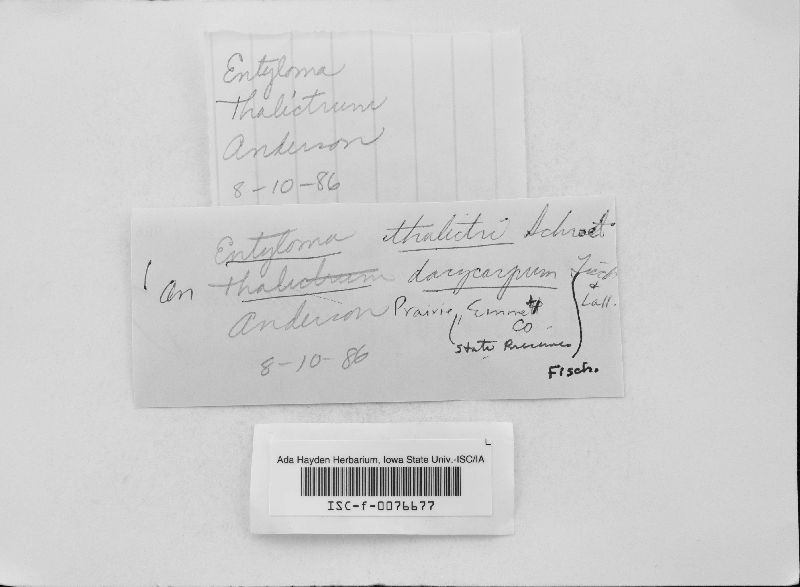 Entyloma
Thalictrum
Anderson
8-10-86
Entyloma thalictri Schroet.
on Thalictrum dasycarpum Fisch.
& Lall.
Anderson Prairie, Emmet
Co.
State Preserves
8-10-86
Fisch.
Ada Hayden Herbarium, Iowa State Univ.-ISC/IA
ISC-f-0076677